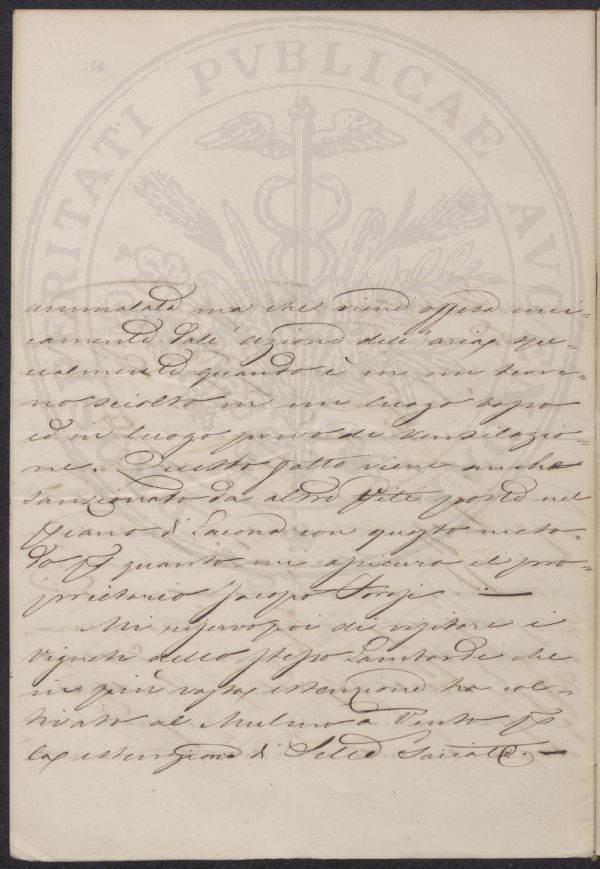 PROSPERITATI PVBLICAE AVGENDAE
ammalata ma che viene offesa uni-
camente dall' azione dell' aria, spe-
cialmente quando è in un terre-
no sciolto in un luogo basso
ed in luogo privo di ventilazio-
ne. Questo fatto viene anche
sanzionato da altre Viti poste nel
piano di Lacona con questo meto-
do p quanto mi assicura il pro-
prietario Jacopo
Mi riservo poi di visitare i
vigneti dello stesso Lambardi che
in più vasta estenzione ha col-
tivato al Mulino a Vento p
la estenzione di